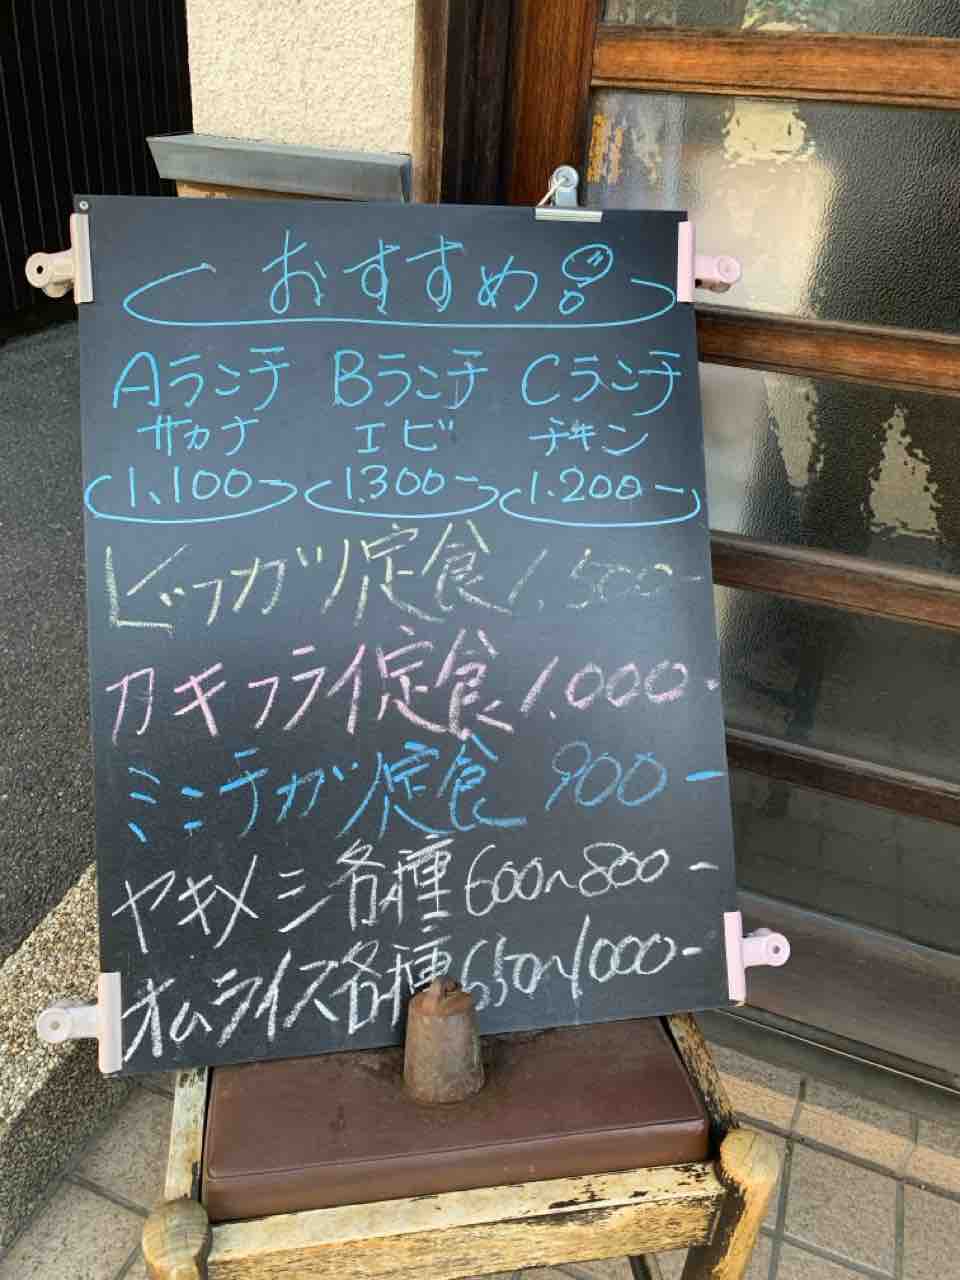 おすすめ!
Aランチ Bランチ Cランチ
サカナ エビ チキン
1,100- 1.300- 1.200-
ビーフカツ定食 1,500-
カキフライ定食 1.000-
ミンチカツ定食 900-
ヤキメシ各種 600〜800-
オムライス各種 650〜1000-